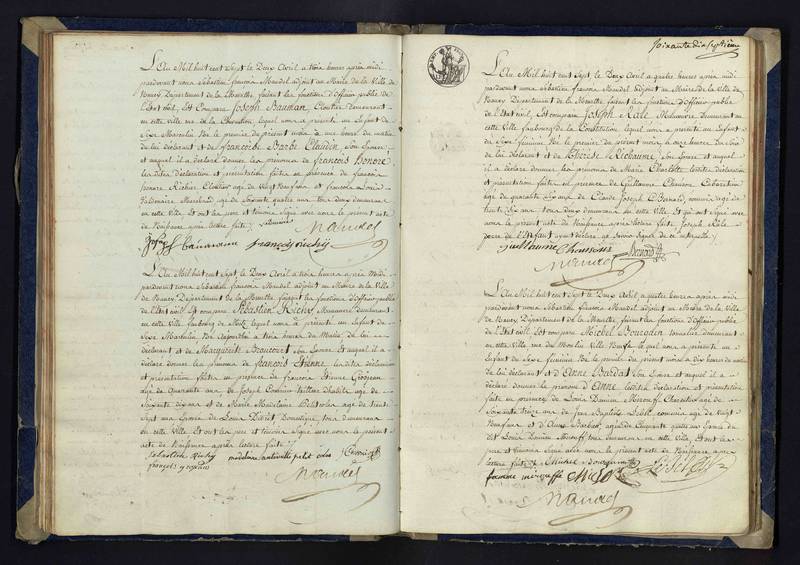 L'An Mil huit cent Sept, le Deux Avril a trois heures après midi
pardevant nous Sébastien françois Mandel adjoint au Maire de la Ville
de Nancy Département de la Meurthe faisant les fonctions d'officier public de
l'État civil, Est Comparu Joseph Bauman, Cloutier demeurant
en cette ville rue de la Constitution lequel nous a présenté un Enfant du
Sexe Masculin Né le premier du présent mois a une heure du matin
de lui déclarant et de françoise Barbe Claudin, Son Epouse
et auquel il a déclaré donner les prénoms de françois honoré
les dites déclaration et présentation faites en présence de françois
honoré Richier Cloutier agé de Vingt Neuf ans et francois
Marchand agé de Soixante quatre ans tous deux demeurant
en cette ville, Et ont les père et témoins Signé avec nous le présent acte
de Naissance après lecture faite.
Mandel
Joseph françois
L'An Mil huit cent Sept, le Deux Avril a trois heures après Midi
pardevant nous Sébastien françois Mandel adjoint au Maire de la Ville
de Nancy Département de la Meurthe faisant les fonctions d'officier public
de l'État civil Est comparu Sébastien Richy Manoeuvre demeurant
en cette Ville faubourg de Metz lequel nous a présenté un Enfant de
Sexe Masculin Né Aujourd'hui a trois heures du Matin de lui
déclarant et de Marguerite Beaucourt Son Epouse et auquel il a
déclaré donner les prénoms de françois Etienne, les dites déclaration
et présentation faites en présence de françois Etienne Grosjean
agé de Quarante ans de Joseph Cominn tailleur d'habits agé de
Soixante dix ans et de Marie Madelaine Petit colas agé de trente
Sept ans Epouse de Louis Domestique, tous demeurans
en cette Ville Et ont les père et témoins Signé avec nous le présent
acte de Naissance après lecture faite
sebastien Richy madelaine petit colas
françois grosjean
Mandel
Soixante dix septième
L'An Mil huit cent Sept, le Deux Avril a quatre heures après midi
pardevant nous sébastien françois Mandel adjoint au Maire de la Ville de
Nancy Département de la Meurthe faisant les fonctions d'officier public
de l'État civil, Est comparu Joseph Kale Manoeuvre, demeurant en
cette Ville faubourg de la Constitution, lequel nous a présenté un Enfant
du Sexe féminin Né le premier du présent mois, a onze heures du soir
de lui déclarant et de Thérèse Richaume, Son Epouse et auquel
il a déclaré donner les prénoms de Marie Charlotte les dites déclaration
et présentation faites en présence de Guillaume Chausson Cabaretier
agé de quarante Six ans de Claude Joseph Bernard, commis agé de
trente Six ans tous deux demeurans en cette Ville Et ont signé avec
nous le présent acte de Naissance après lecture faite, Joseph Kale
père de l'Enfant ayant déclaré ne savoir Signer de ce interpellé.
Guillaume Chausson Bernard
Mandel
L'An Mil huit cent Sept, le Deux Avril, a quatre heures après midi
pardevant nous Sébastien françois Mandel adjoint au Maire de la Ville
de Nancy Département de la Meurthe faisant les fonctions d'officier public
de l'État civil Est comparu Michel Bourgoin tonnelier, demeurant en
cette Ville rue du Moulin Ville Neuve lequel nous a présenté un
Enfant du Sexe féminin Né le premier du présent mois a dix heures du matin
de lui déclarant et d'Anne Bardat Son Epouse et auquel il a
déclaré donner le prénom d'Anne les dites déclaration et présentation
faites en présence de Louis Damien Charcutier agé de
Soixante treize ans de Jean Baptiste commis agé de Vingt
Neuf ans et d'Anne agée de Cinquante quatre ans Epouse du
dit Louis Damien tous demeurans en cette ville, Et ont les
père et témoins Signé avec nous le présent acte de Naissance après
lecture faite. Michel Bourgoin
femme
Mandel